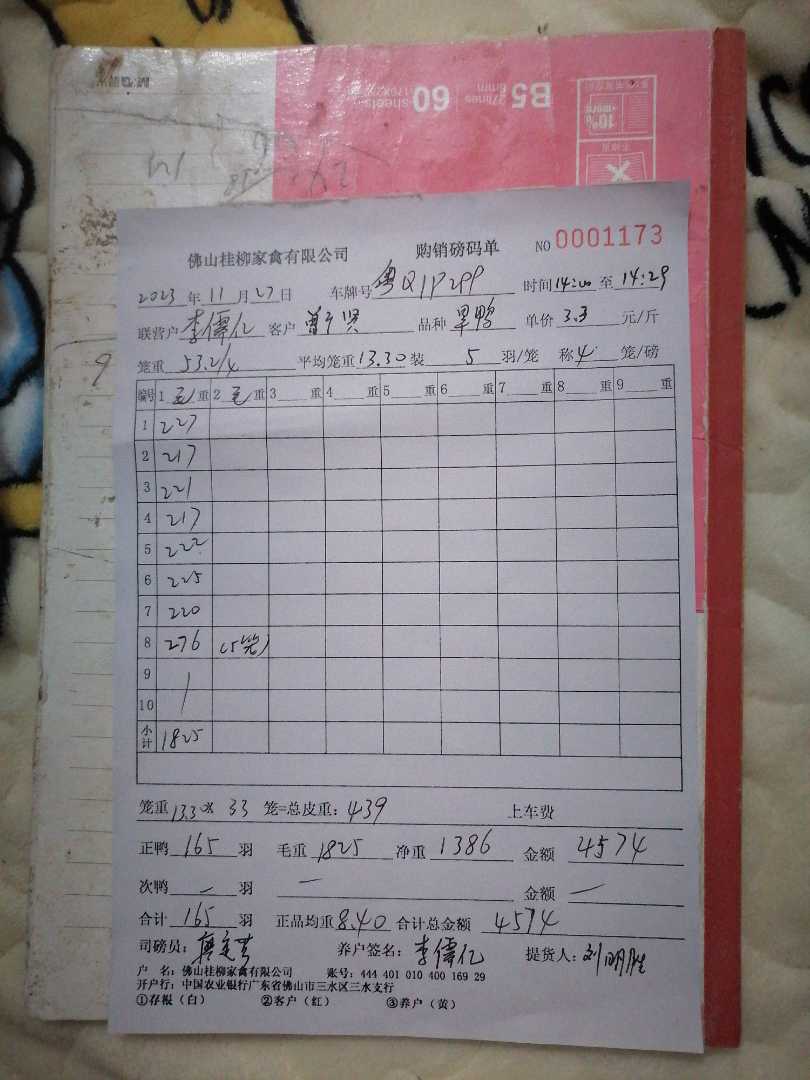 B5
27lines
8mm
60
sheets
10%
+more
佛山桂柳家禽有限公司 购销磅码单 NO 0001173
2023 年 11 月 27 日 车牌号 粤Q1P299 时间 14:00 至 14:29
联营户 李伟亿 客户 曾广贤 品种 黑鸭 单价 3.3 元/斤
笼重 53.2/4 平均笼重 13.30 装 5 羽/笼 称 4 笼/磅
编号 1 毛 重 2 毛 重 3 重 4 重 5 重 6 重 7 重 8 重 9 重
1 227
2 217
3 221
4 217
5 222
6 225
7 220
8 276 (5笼)
9
10
小计 1825
笼重 13.30x 33 笼=总皮重: 439 上车费
正鸭 165 羽 毛重 1825 净重 1386 金额 4574
次鸭 — 羽 — 金额 —
合计 165 羽 正品均重 8.40 合计总金额 4574
司磅员: 养户签名: 李伟亿 提货人: 刘明胜
户 名: 佛山桂柳家禽有限公司 账号: 444 401 010 400 169 29
开户行: 中国农业银行广东省佛山市三水区三水支行
①存根（白） ②客户（红） ③养户（黄）